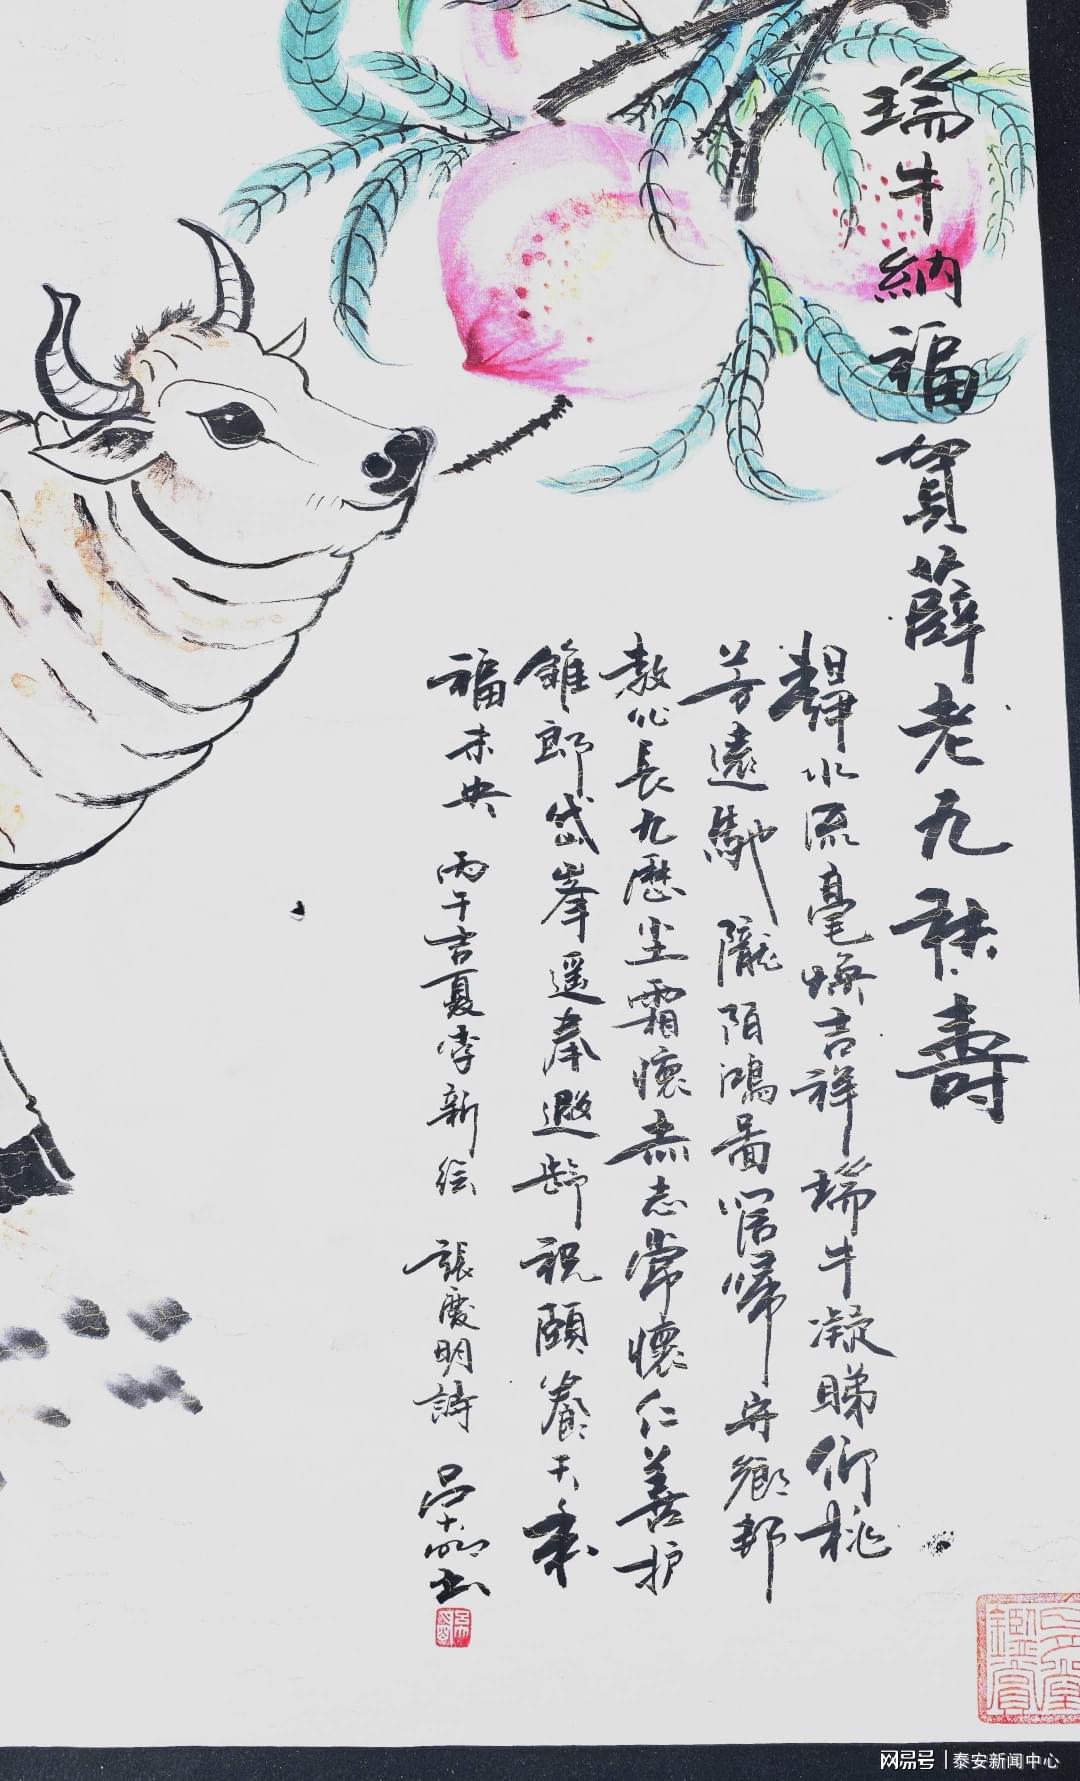 瑞牛納福賀薛老九秩壽
水流毫焕吉祥瑞牛凝睇仰桃
芳遠馳隴陌鴻啚歸守鄉邦
教化長九歷尘霜懷赤志常懷仁善护
雛郎岱峯遥奉遐齡祝頤養天秊
福未央 丙午吉夏李新绘 張慶明詩 书
鑑賞
网易号 | 泰安新闻中心